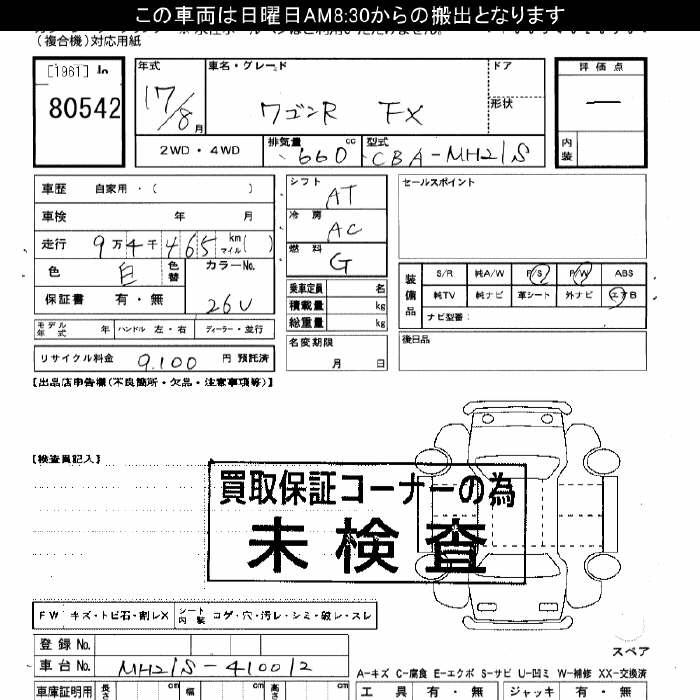 この車両は日曜日AM8:30からの搬出となります
(複合機)対応用紙
[1961] Jo
80542
年式
17/8月
車名・グレード
ワゴンR FX
ドア
形状
評価点
—
内装
2WD・4WD
排気量 660 cc
型式 CBA-MH21S
車歴 自家用・( )
車検 年 月
走行 9万4千465 km マイル( )
色 白 色替
カラーNo. 26U
保証書 有・無
モデル年式 年 ハンドル 左・右 ディーラー・並行
リサイクル料金 9,100 円 預託済
シフト AT
冷房 AC
燃料 G
乗車定員 名
積載量 kg
総重量 kg
名変期限
月 日
セールスポイント
装備品
S/R 純A/W P/S P/W ABS
純TV 純ナビ 革シート 外ナビ エアB
ナビ型番:
後日品
【出品店申告欄(不良箇所・欠品・注意事項等)】
【検査員記入】
買取保証コーナーの為
未検査
FW キズ・トビ石・割レX シート内装 コゲ・穴・汚レ・シミ・破レ・スレ
登録No.
車台No. MH21S-410012
スペア
A-キズ C-腐食 E-エクボ S-サビ U-凹ミ W-補修 XX-交換済
車庫証明用 長さ cm 幅 cm 高さ cm
工具 有・無 ジャッキ 有・無